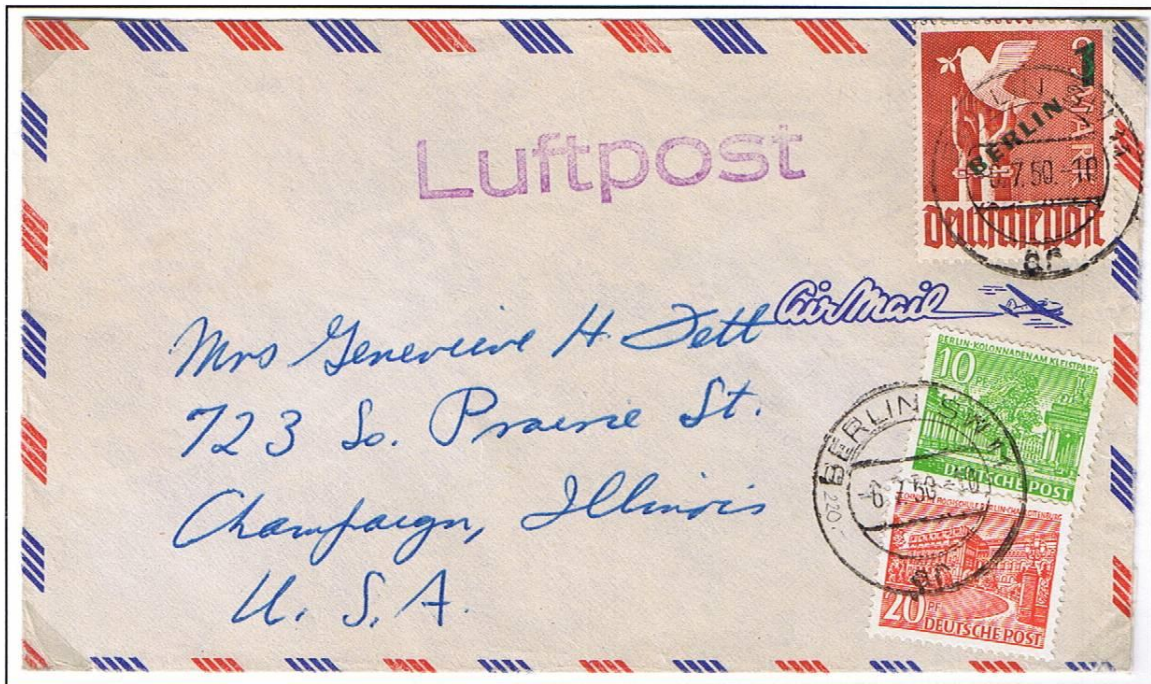 Luftpost
MARK
1
BERLIN
6.7.50.-18
Deutsche Post
Air Mail
Mrs Genevieve H. Dett
723 So. Prairie St.
Champaign, Illinois
U. S. A.
BERLIN-KOLONNADEN AM KLEISTPARK
10 PF
DEUTSCHE POST
BERLIN SW
-6.7.50.-
220
20 PF
DEUTSCHE POST